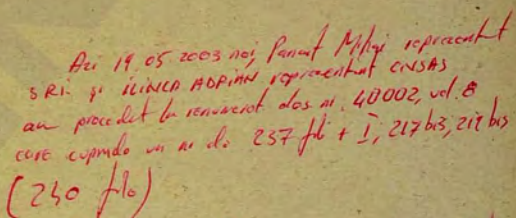 Azi 19.05.2003 noi, Panait Mihai reprezentant
SRI și ILINCA ADRIAN reprezentant CNSAS
am procedat la renumerot dos nr. 40002, vol. 8
care cuprinde un nr de 237 file + I, 217 bis, 219 bis
(240 file)